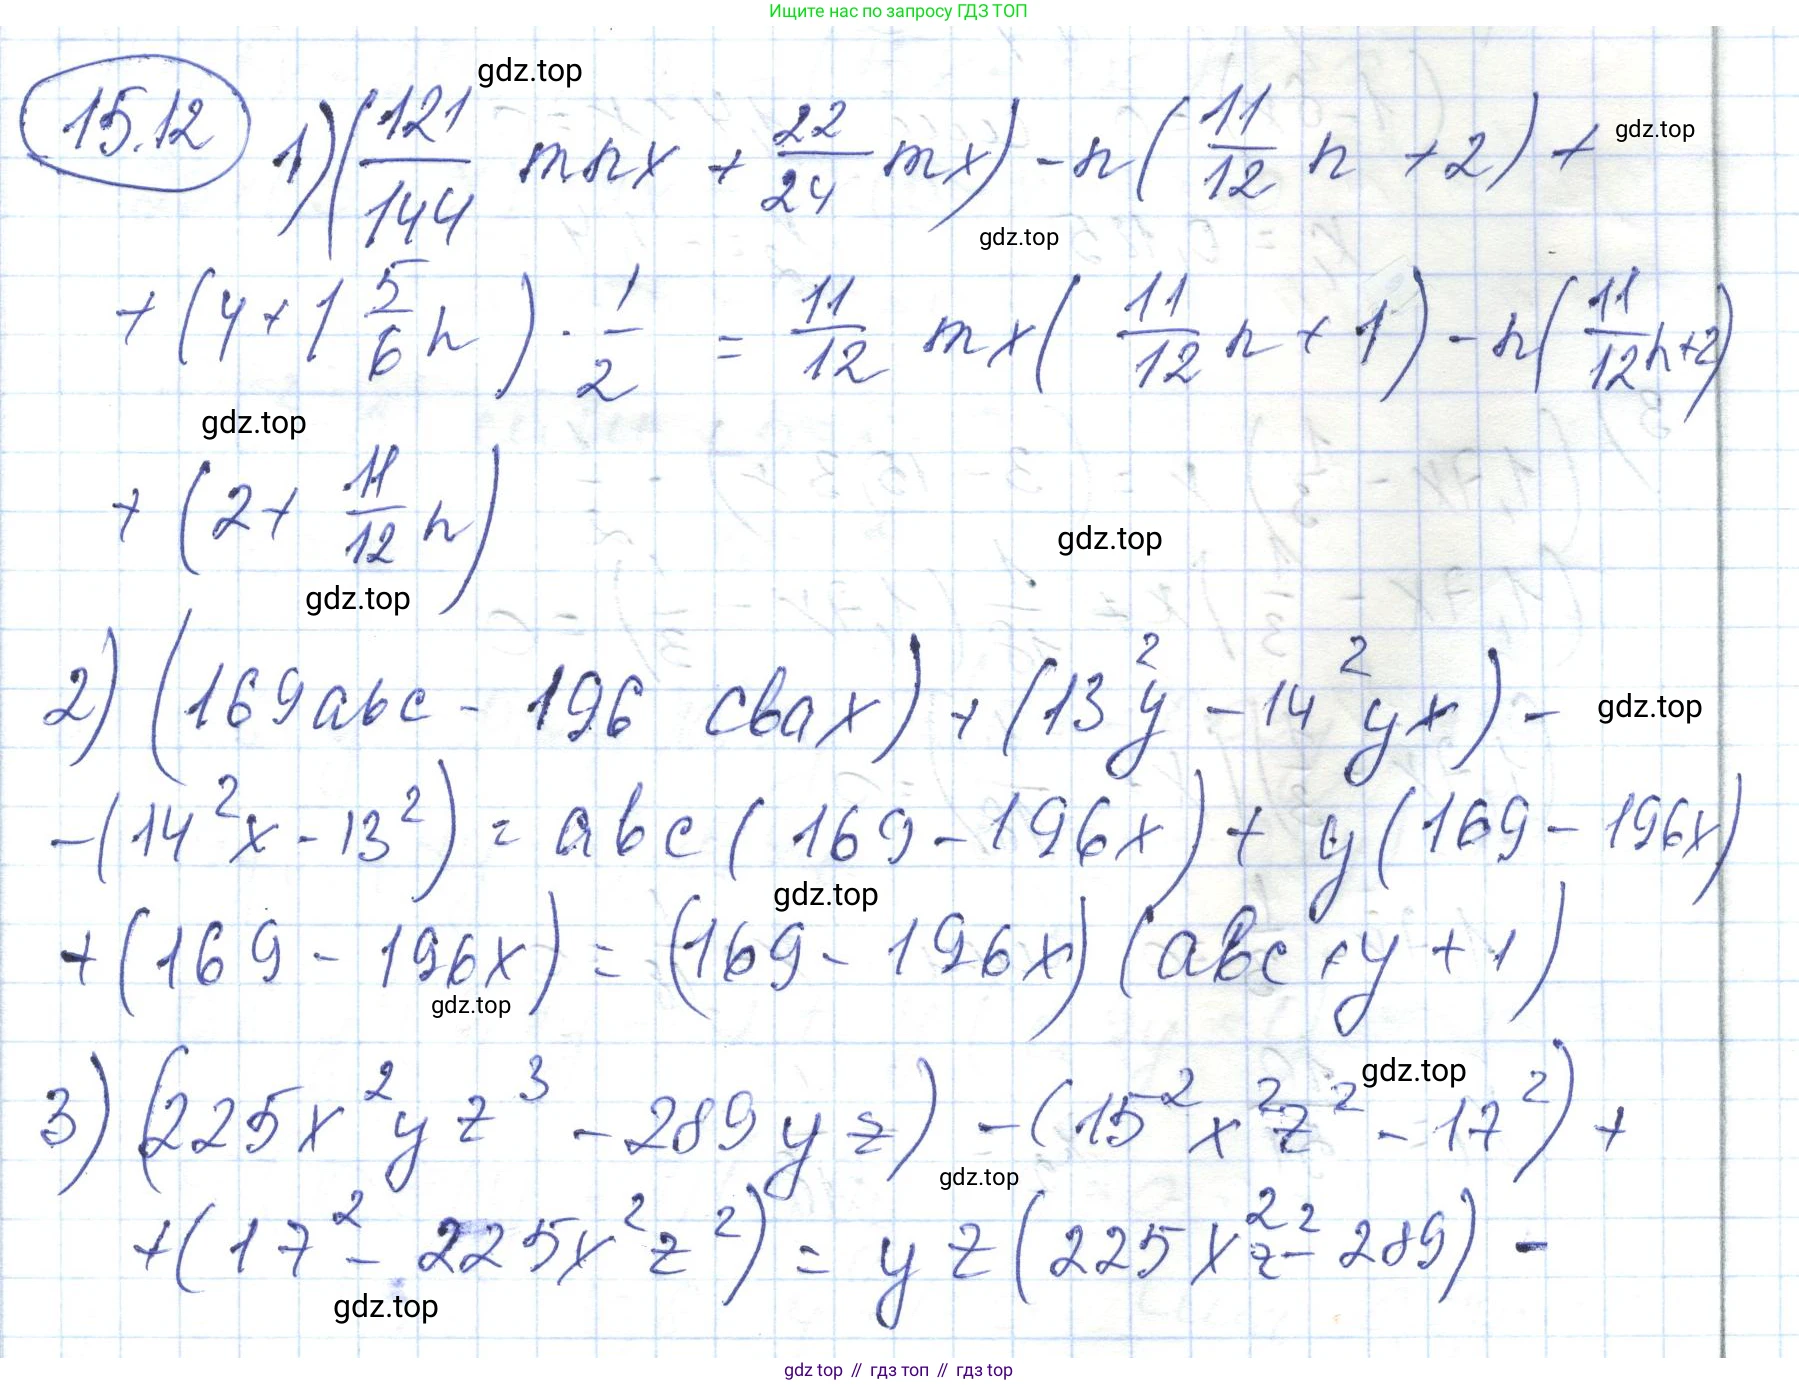 Ищите нас по запросу ГДЗ ТОП
gdz.top
15.12 1) (121/144 mnx + 22/24 mx) - n(11/12 n + 2) + gdz.top
gdz.top
+ (4 + 1 5/6 n) · 1/2 = 11/12 mx(11/12 n + 1) - n(11/12 n + 2)
gdz.top
+ (2 + 11/12 n)
gdz.top
gdz.top
2) (169abc - 196 cbax) + (13²y - 14²yx) - gdz.top
- (14²x - 13²) = abc(169 - 196x) + y(169 - 196x)
gdz.top
+ (169 - 196x) = (169 - 196x)(abc + y + 1)
gdz.top
gdz.top
3) (225x²yz³ - 289yz) - (15²x²z² - 17²) +
gdz.top
+ (17² - 225x²z²) = yz(225x²z² - 289) -
gdz.top
gdz top // гдз топ // gdz top